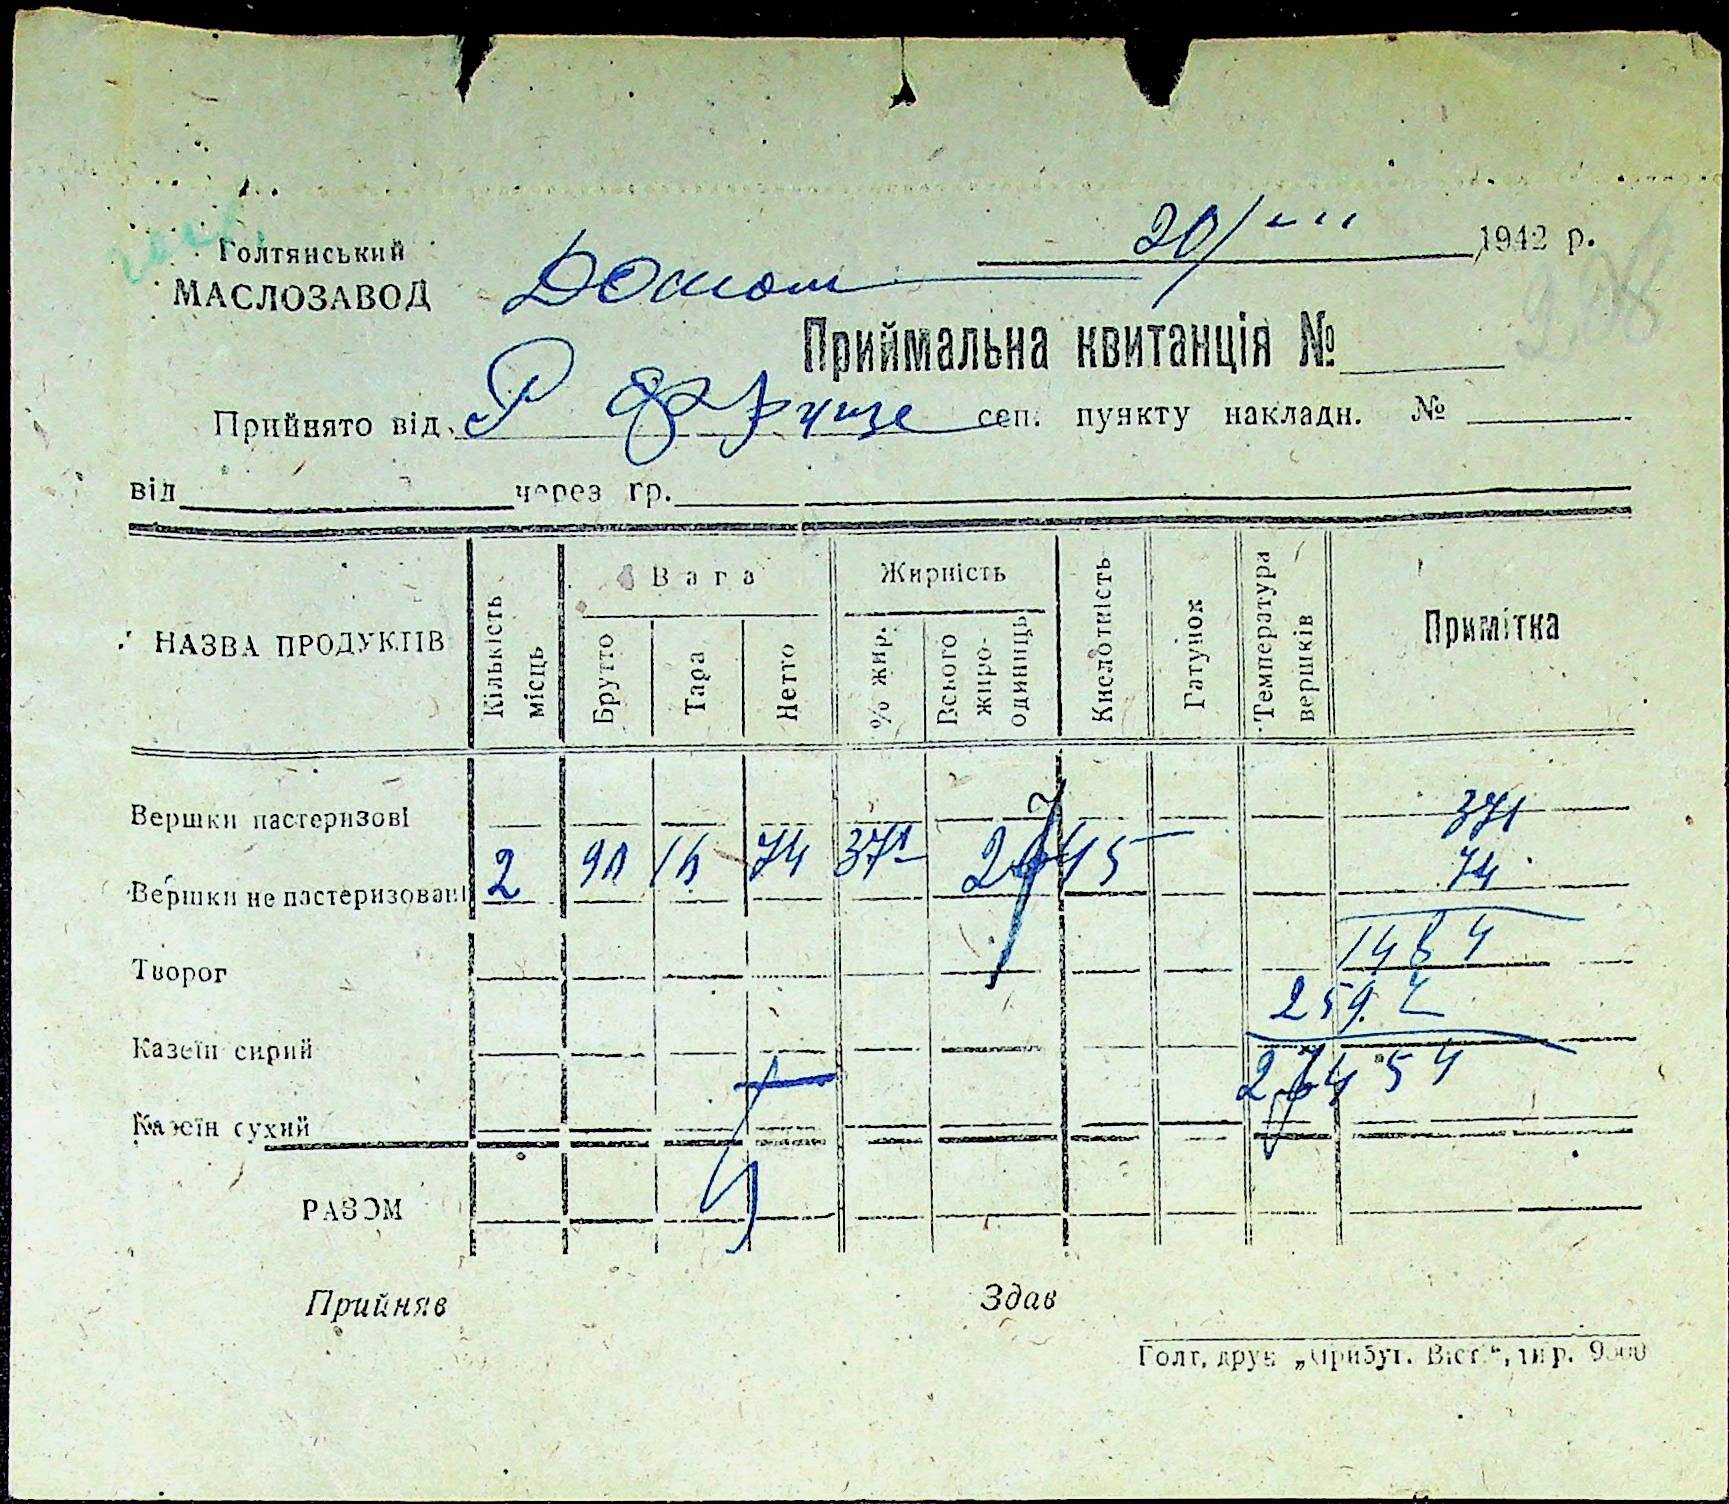 20/III 1942 р.
Голтянський
МАСЛОЗАВОД
Приймальна квитанція №
Прийнято від сеп. пункту накладн. №
від через гр.
НАЗВА ПРОДУКТІВ
Кількість місць
Вага
Брутто
Тара
Нетто
Жирність
% жир.
Всього жиро-одиниць
Кислотність
Гатунок
Температура вершків
Примітка
Вершки пастеризові
371
Вершки не пастеризовані 2 90 16 74 371
74
Творог
1484
259
Казеїн сирий
Казеїн сухий
РАЗОМ
Прийняв Здав
Голт. друк. „Прибут. Вісті“, тир. 9000